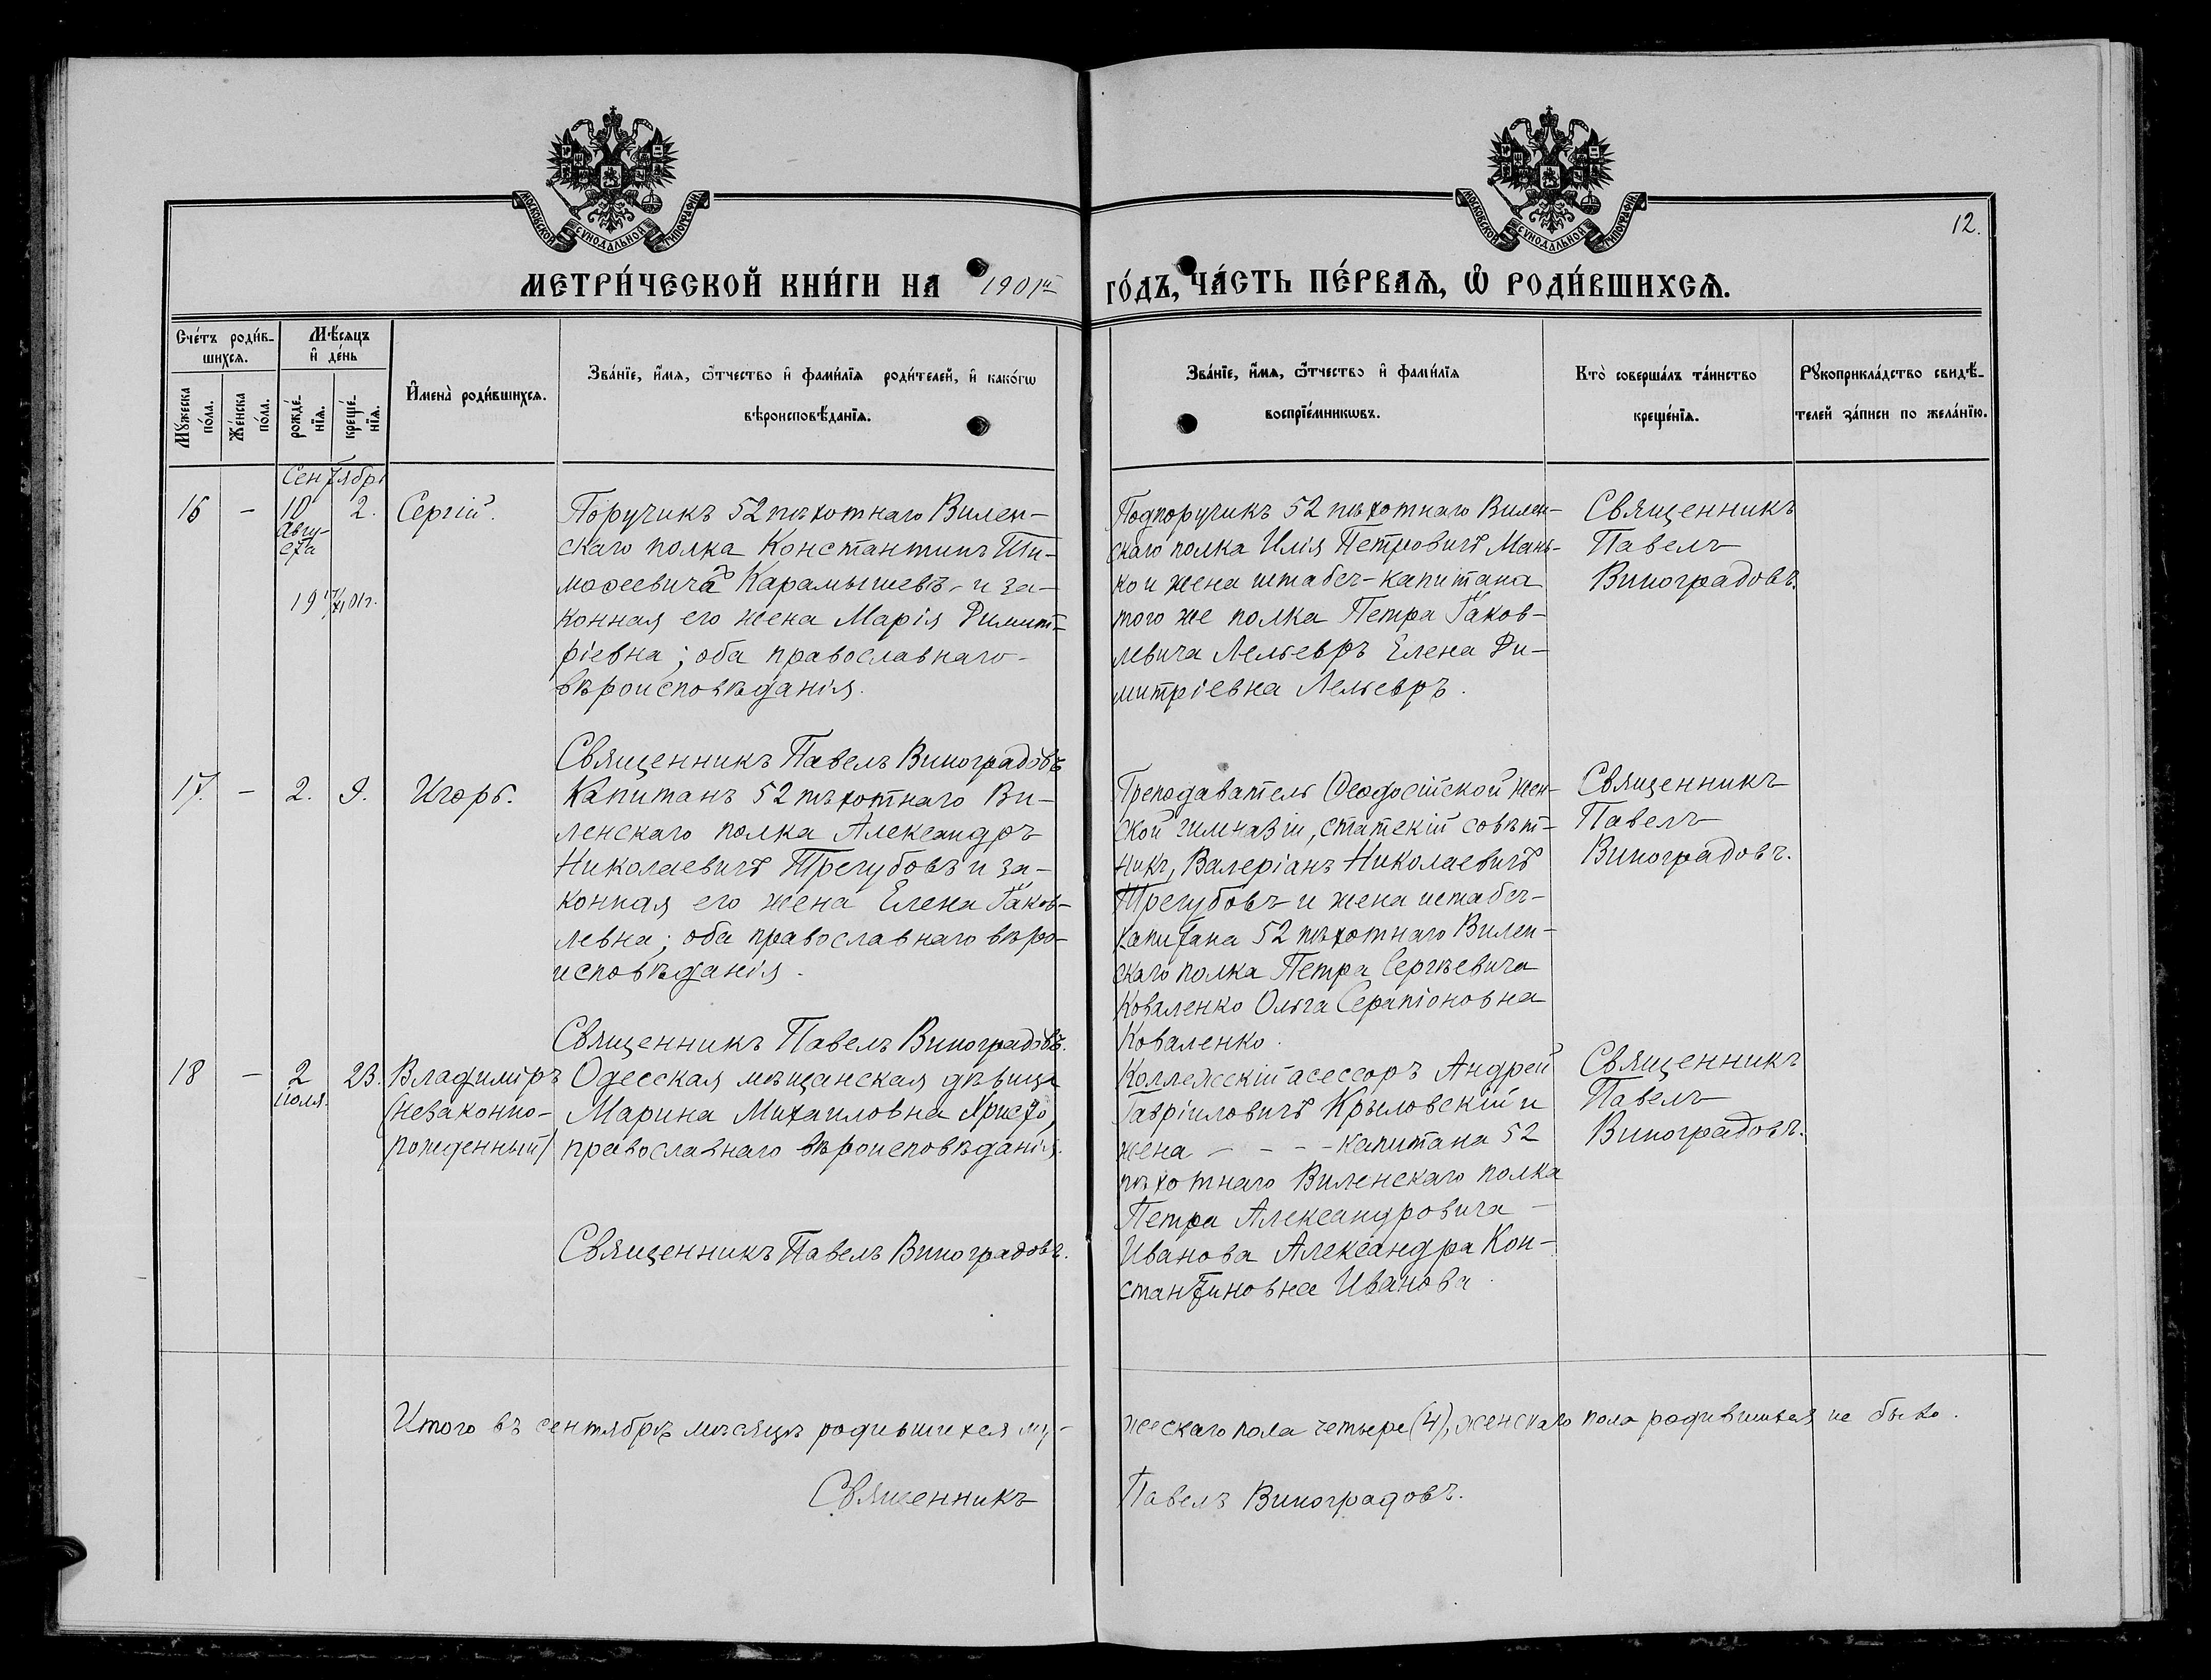 МОСКОВСКОЙ СѴНОДАЛЬНОЙ ТИПОГРАФІИ
МОСКОВСКОЙ СѴНОДАЛЬНОЙ ТИПОГРАФІИ
12.
МЕТРИ́ЧЕСКОЙ КНИ́ГИ НА 1901й ГО́ДЪ, ЧА́СТЬ ПЕ́РВАѦ, Ѽ РОДИ́ВШИХСѦ.
Сче́тъ роди́в-
шихсѧ.
Мѣ́сѧцъ
и҆ де́нь
Мꙋ́жеска
по́ла.
Же́нска
по́ла.
рожде́-
нїѧ.
креще́-
нїѧ.
И҆мена̀ роди́вшихсѧ.
Зва́нїе, и҆́мѧ, ѻ҆́тчество и҆ фами́лїѧ роди́телей, и҆ како́гѡ
вѣроисповѣ́данїѧ.
Зва́нїе, и҆́мѧ, ѻ҆́тчество и҆ фами́лїѧ
воспрїе́мникѡвъ.
Кто̀ соверша́лъ та́инство
креще́нїѧ.
Рꙋкоприкла́дство свидѣ́-
телей за́писи по жела́нїю.
Сентябрь
16 - 10 2. Сергій.
Авгу-
ста
Поручикъ 52 пѣхотнаго Вилен-
скаго полка Константинъ Ти-
моѳеевичъ Карамышевъ и за-
конная его жена Марія Димит-
ріевна; оба православнаго
вѣроисповѣданія.
Священникъ Павелъ Виноградовъ
Подпоручикъ 52 пѣхотнаго Вилен-
скаго полка Илія Петровичъ Мань-
ко и жена штабсъ-капитана
того же полка Петра Іаков-
левича Лельевръ Елена Ди-
митріевна Лельевръ.
Священникъ
Павелъ
Виноградовъ.
17. - 2. 9. Игорь.
Капитанъ 52 пѣхотнаго Ви-
ленскаго полка Александръ
Николаевичъ Трегубовъ и за-
конная его жена Елена Іаков-
левна; оба православнаго вѣро-
исповѣданія.
Священникъ Павелъ Виноградовъ.
Преподаватель Ѳеодосійской жен-
ской гимназіи, статскій совѣт-
никъ, Валеріанъ Николаевичъ
Трегубовъ и жена штабсъ-
капитана 52 пѣхотнаго Вилен-
скаго полка Петра Сергѣевича
Коваленко Ольга Серапіоновна
Коваленко.
Священникъ
Павелъ
Виноградовъ.
18 - 2 23. Владиміръ
іюля.
(незаконно-
рожденный)
Одесская мѣщанская дѣвица
Марина Михаиловна Христо,
православнаго вѣроисповѣданія.
Священникъ Павелъ Виноградовъ.
Коллежскій асессоръ Андрей
Гавріиловичъ Крыловскій и
жена - - - - капитана 52
пѣхотнаго Виленскаго полка
Петра Александровича
Иванова Александра Кон-
стантиновна Иванова.
Священникъ
Павелъ
Виноградовъ.
Итого въ сентябрѣ мѣсяцѣ родившихся му-
жескаго пола четыре (4), женскаго пола родившихся не было.
Священникъ Павелъ Виноградовъ.